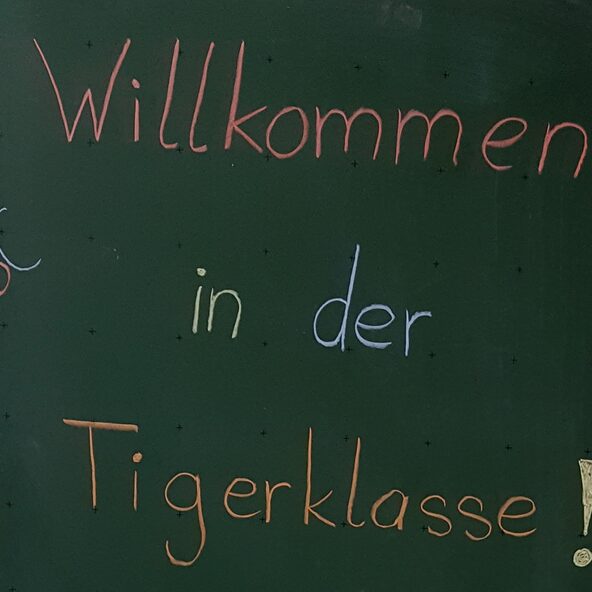 Willkommen
in der
Tigerklasse!